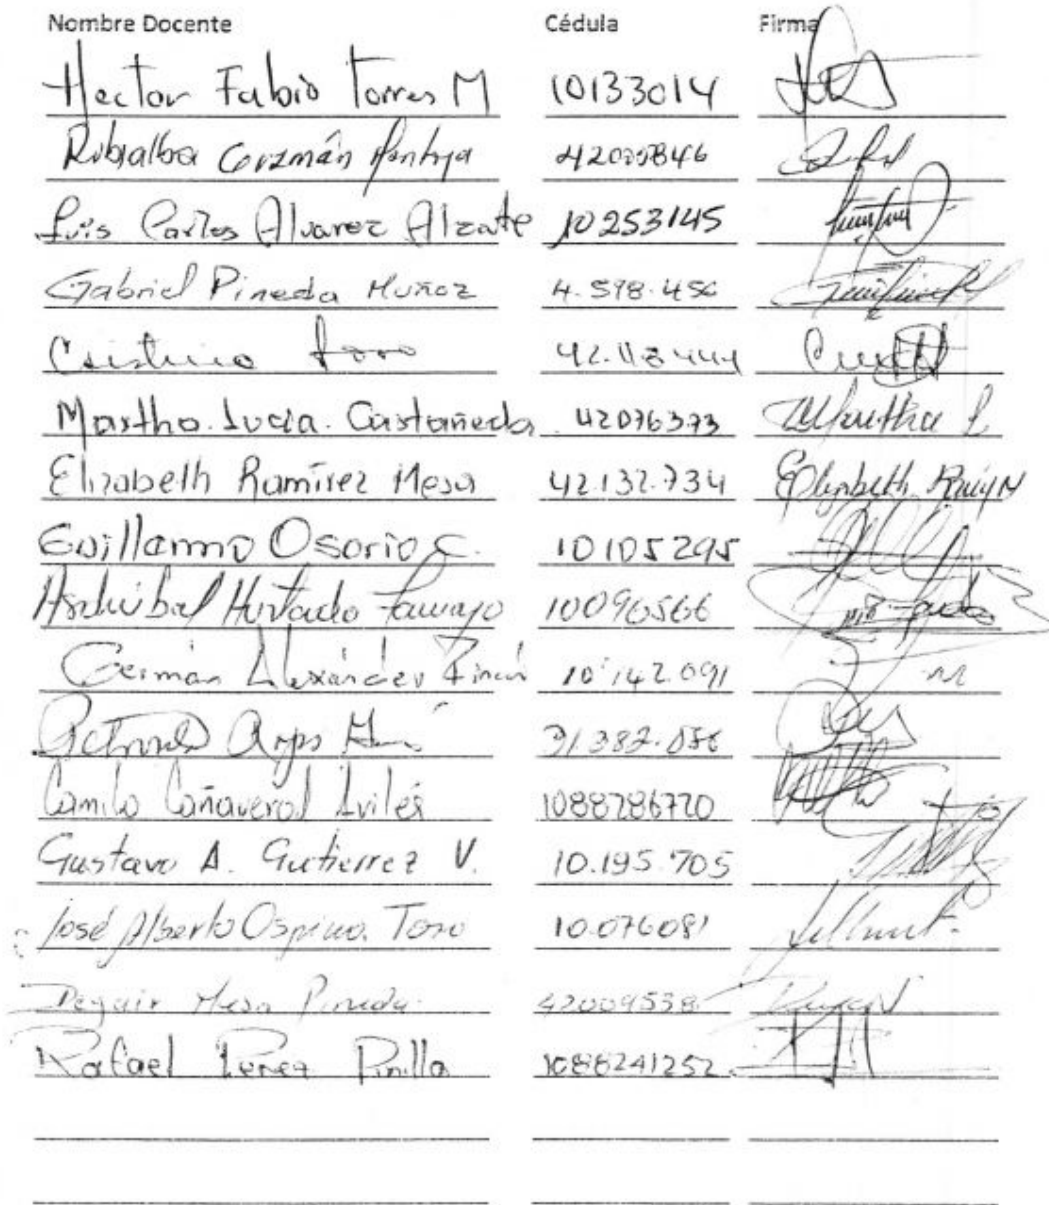 Nombre Docente Cédula Firma
Hector Fabio Torres M 10133014
Rubialba Guzmán 42000846
Luis Carlos Alvarez Alzate 10253145
Gabriel Pineda Muñoz 4.598.456
Cristina Toro 42.118444
Martha. Lucia. Castañeda 42076373 Martha L
Elizabeth Ramírez Mesa 42.132.734 Elizabeth
Guillermo Osorio C. 10105295
Hurtado Tamayo 10096566
Germán Alexánder Rincón 10'142.091
31.382.
Camilo Cañaveral Avilés 1088286720
Gustavo A. Gutierrez V. 10.195.705
José Alberto Ospina Toro 10.076081
Mesa Pineda 42009538
Rafael Perez Pinilla 1088241252